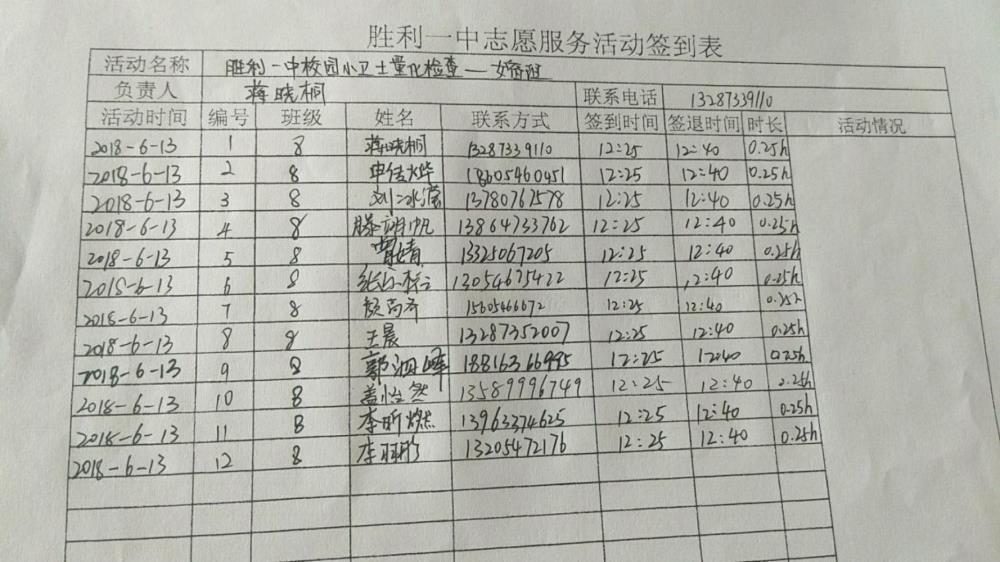 胜利一中志愿服务活动签到表
活动名称 胜利一中校园小卫士量化检查—
负责人 蒋晓桐 联系电话 13287339110
活动时间 编号 班级 姓名 联系方式 签到时间 签退时间 时长 活动情况
2018-6-13 1 8 蒋晓桐 13287339110 12:25 12:40 0.25h
2018-6-13 2 8 18605460451 12:25 12:40 0.25h
2018-6-13 3 8 13780767578 12:25 12:40 0.25h
2018-6-13 4 8 滕翊帆 13864733762 12:25 12:40 0.25h
2018-6-13 5 8 13325067205 12:25 12:40 0.25h
2018-6-13 6 8 13054675422 12:25 12:40 0.25h
2018-6-13 7 8 15605466672 12:25 12:40
2018-6-13 8 8 王晨 13287352007 12:25 12:40 0.25h
2018-6-13 9 8 郭泗晖 18816366995 12:25 12:40 0.25h
2018-6-13 10 8 盖怡然 13589996749 12:25 12:40 0.25h
2018-6-13 11 8 李昕燃 13963374625 12:25 12:40 0.25h
2018-6-13 12 8 13205472176 12:25 12:40 0.25h